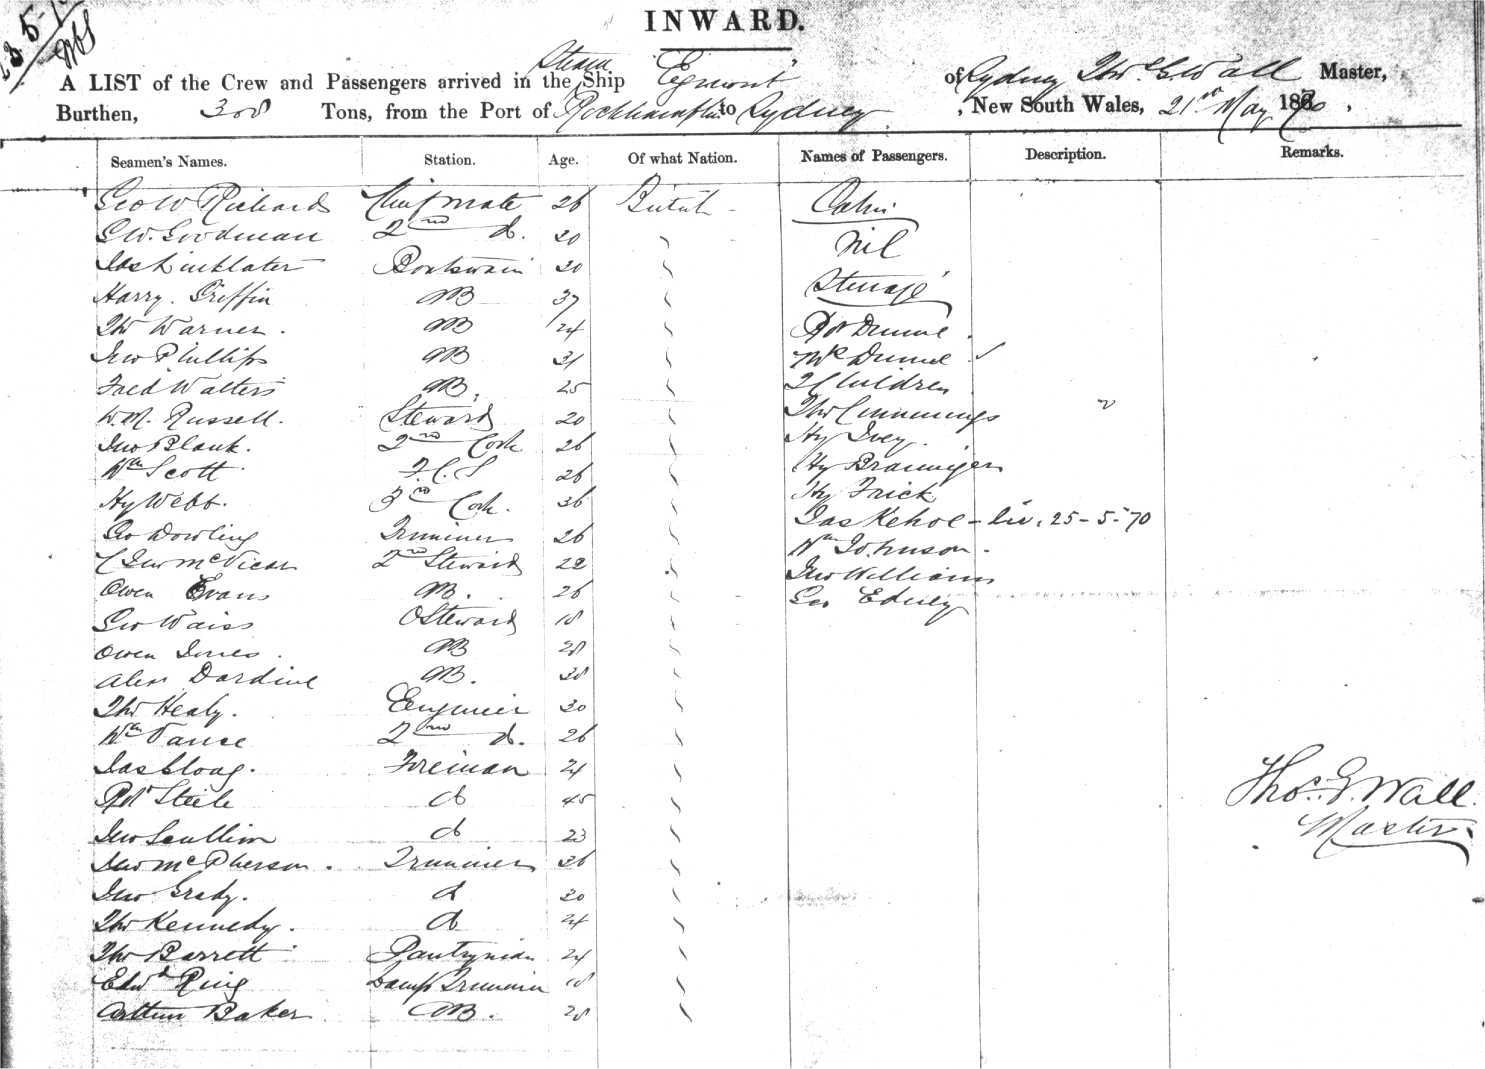 23-5-70
INWARD.
A LIST of the Crew and Passengers arrived in the Steam Ship Egmont of Sydney Thos G Wall Master,
Burthen, 308 Tons, from the Port of Rockhampton to Sydney, New South Wales, 21st May 1870.
Seamen's Names. Station. Age. Of what Nation. Names of Passengers. Description. Remarks.
Geo W Richards Chief mate 26 British Cabin
G W. Goodman 2nd do. 20 Nil
Jas Linklater Boatswain 30 Steerage
Harry Griffin AB 37
Thos Warner. AB 24 Rbt Dunne
Jno Phillips AB 31 Mrs Dunne
Fred Walters AB. 25 Children
W.M. Russell. Steward 20 Thos Cummings
Jno Blank. 2nd Cook 26 Hy Ivey.
Wm Scott F.C.S 26 Hy Braunigen
Hy Webb. 3rd Cook. 36 Hy Frick
Geo Dowling Trimmer 26 Jas Kehoe - liv. 25-5-70
Jno McVicar 2nd Steward 22 Wm Johnson.
Owen Evans AB. 26 Jno Williams
Geo Waiss Steward 18 Geo Edney
Owen Jones. AB 28
Alex Dardine AB. 38
Thos Healy. Engineer 30
Wm Vance 2nd do. 26
Jas Cloag. Fireman 24
Rbt Steele do 45
Jno Scullion do 23
Jno McPherson. Trimmer 36
Jno Grady. do 20
Thos Kennedy. do 24
Thos Barrett Pantryman 24
Edwd Ring Lamp Trimmer 18
Arthur Baker AB. 28
Thos. G. Wall.
Master